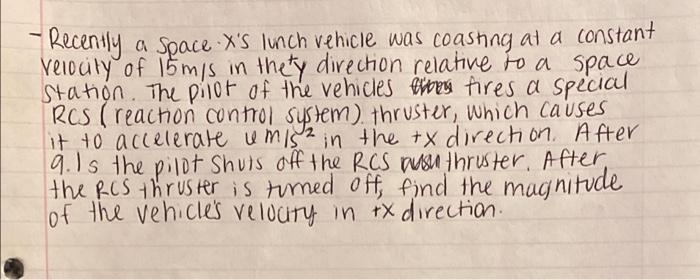 - Recently a space-X's lunch vehicle was coasting at a constant
velocity of 15m/s in the +y direction relative to a space
station. The pilot of the vehicles fires a special
RCS (reaction control system) thruster, which causes
it to accelerate u m/s² in the +x direction. After
9.1s the pilot shuts off the RCS thruster. After
the RCS thruster is turned off, find the magnitude
of the vehicle's velocity in +x direction.